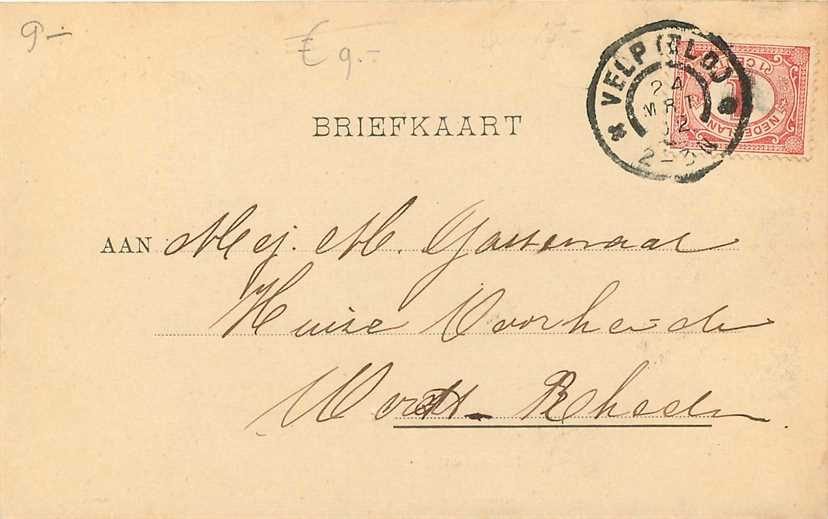 9.-
€ 9.-
VELP (GLD.)
24
MRT
02
2-3N
1 CENT
NEDERLAND
BRIEFKAART
AAN Mej. M. Gastenaar
Huize Voorheide
Rheden